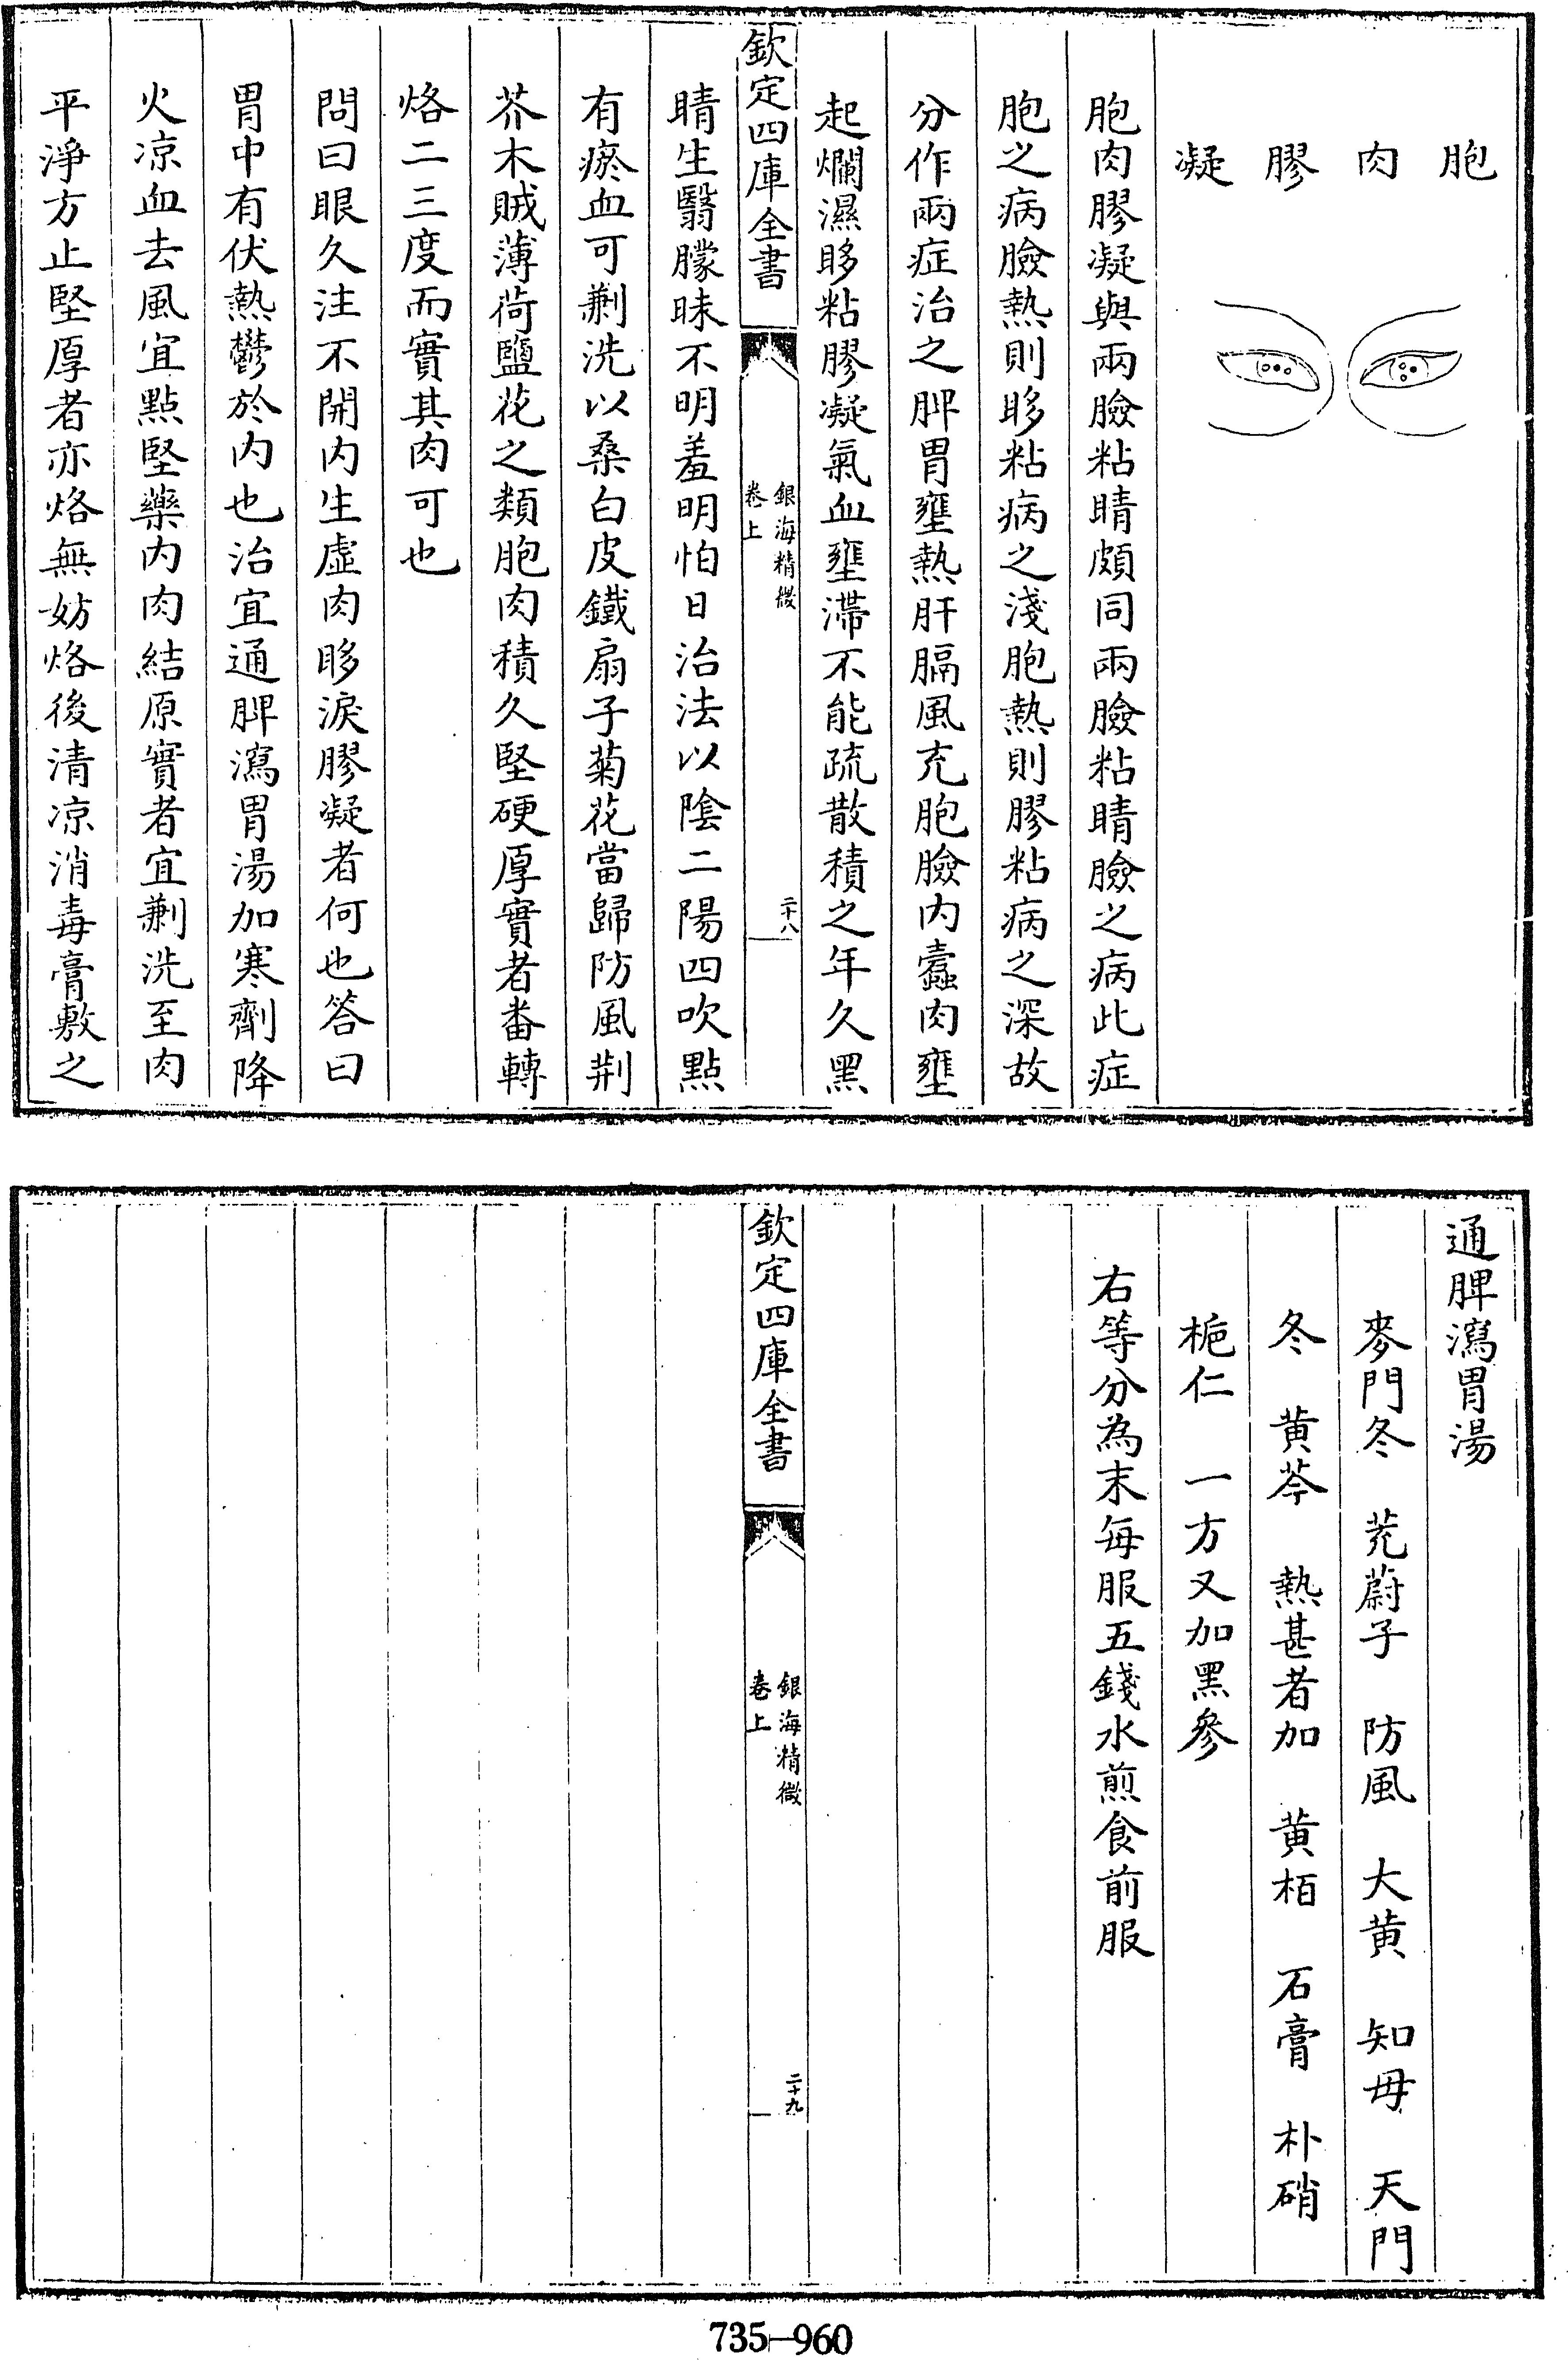 胞肉膠凝
胞肉膠凝與兩臉粘睛頗同兩臉粘睛臉之病此症
胞之病臉熱則眵粘病之淺胞熱則膠粘病之深故
分作兩症治之脾胃壅熱肝膈風充胞臉内蠹肉壅
起爛濕眵粘膠凝氣血壅滯不能疏散積之年久黑
欽定四庫全書
銀海精微
卷上
二十八
睛生翳朦昧不明羞明怕日治法以陰二陽四吹點
有瘀血可劆洗以桑白皮鐵扇子菊花當歸防風荆
芥木賊薄荷鹽花之類胞肉積久堅硬厚實者畨轉
烙二三度而實其肉可也
問曰眼久注不開内生虛肉眵淚膠凝者何也答曰
胃中有伏熱鬱於内也治宜通脾瀉胃湯加寒劑降
火凉血去風宜點堅藥内肉結原實者宜劆洗至肉
平淨方止堅厚者亦烙無妨烙後清凉消毒膏敷之
通脾瀉胃湯
麥門冬　茺蔚子　防風　大黄　知母　天門
冬　黄芩　熱甚者加　黄栢　石膏　朴硝
梔仁　一方又加黑參
右等分為末每服五錢水煎食前服
欽定四庫全書
銀海精微
卷上
二十九
735-960